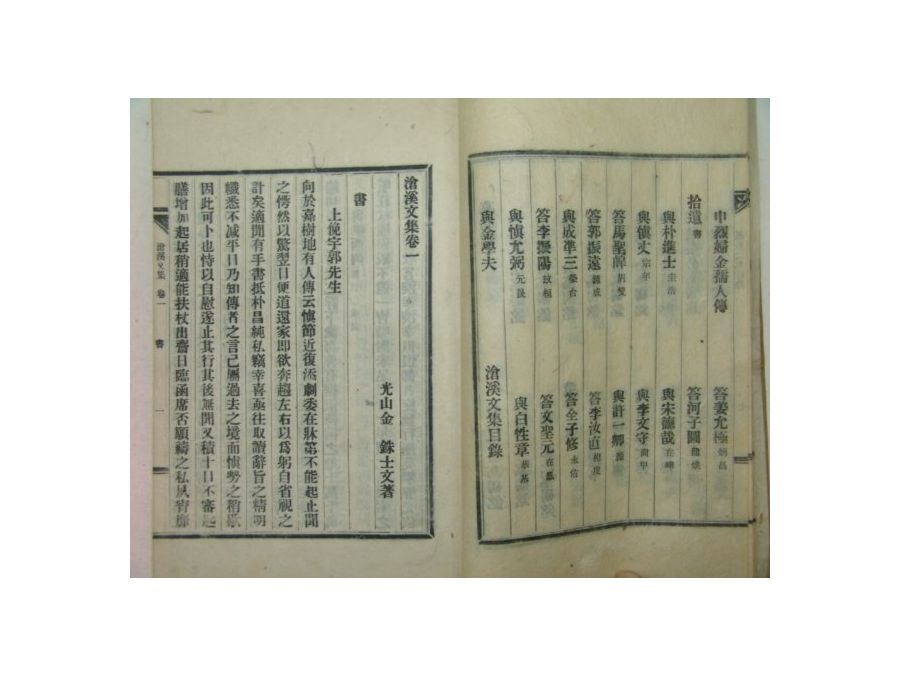 申烈婦金孺人傳
拾遺 書
與朴進士 圭浩
與慎丈 宗年
答馬聖齅
答郭振遠
與成準三
答李振陽 致桓
與慎尤弼 元晟
與金學夫
答姜尤極 炳昌
答河子圖 龍煥
與宋德哉 在晫
與李文守
與許一卿
答李汝直 相度
答全子修 永佑
答文聖元 在鳳
與白性章
滄溪文集目錄
滄溪文集卷一
光山金 銖士文著
書
上俛宇郭先生
向於嘉樹地有人傳云慎節近復添劇委在牀第不能起止聞
之愕然以驚翌日便道還家即欲奔趨左右以爲躬自省視之
計矣適聞有手書抵朴昌純私竊幸喜亟往取讀辭旨之精明
纖悉不減平日乃知傳者之言已屬過去之境而慎勢之稍
因此可卜也恃以自慰遂止其行其後無聞又積十日不審起
膳增加起居稍適能扶杖出齋日臨函席否願禱之私夙宵靡
滄溪文集 卷一 書 一